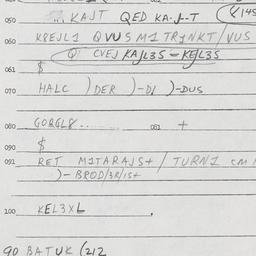 050 KAJT QED KA.J-T (8145
060 K8EJL1 QVUSM1 TRJNKT/VUS
Q CVEJ KAJL3S - KEJL3S
061 $
070 HALC )DER )-DJ )-DUS
080 GORGL8.. 081 +
090 $
091 RET M1TARAJS+/TURN1 CM
)-BROD/3R/1S+
100 KEL3XL .
90 BATUK (212